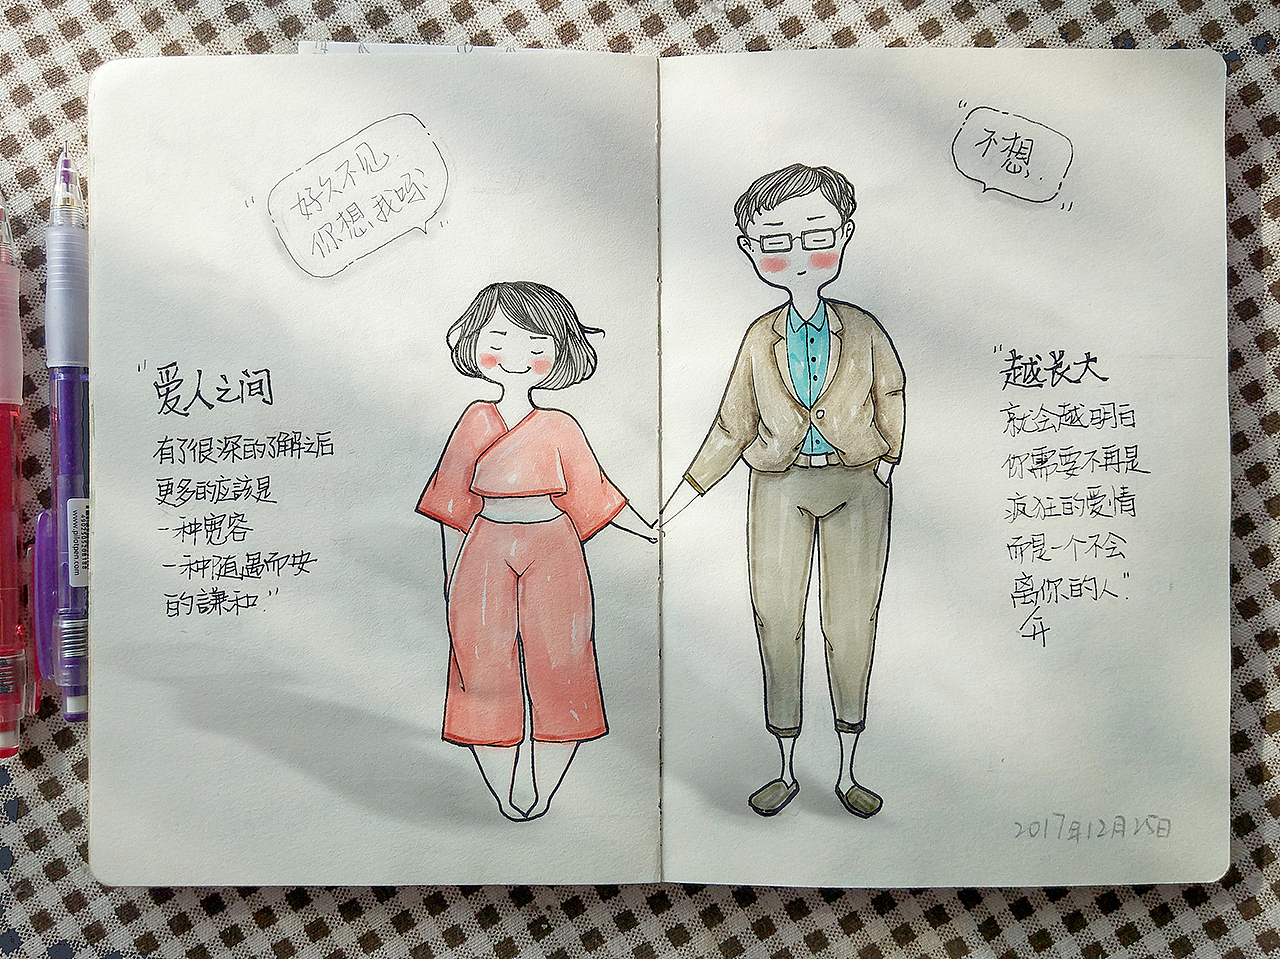 好久不见.
你想我吗
"爱人之间
有了很深的了解之后
更多的应該是
一种宽容
一种随遇而安
的謙和."
"不想."
"越长大
就会越明白
你需要不再是
疯狂的爱情
而是一个不会
离你的人."
开
2017年12月25日
www.pilotpen.com